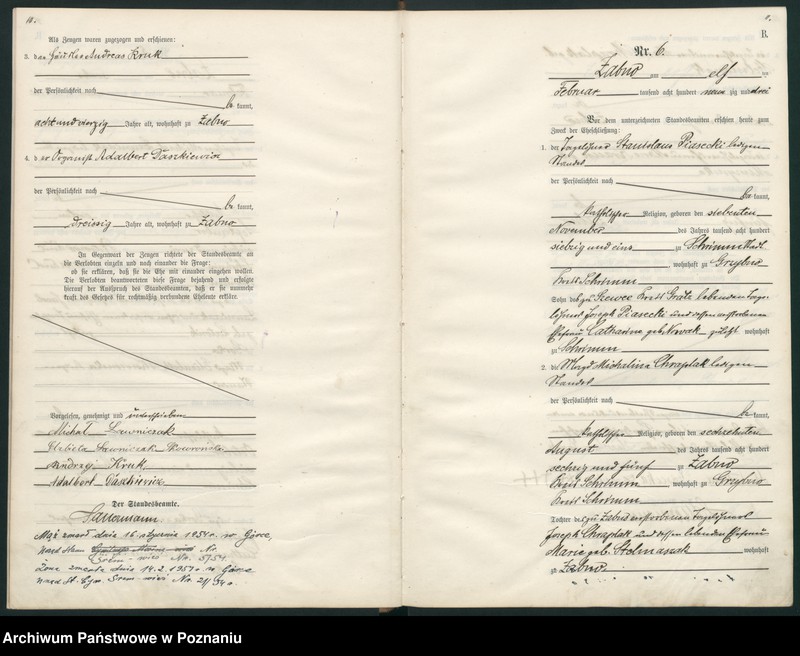 10.
Als Zeugen waren zugezogen und erschienen:
3. der Häusler Andreas Kruk
der Persönlichkeit nach
bekannt,
achtundvierzig Jahre alt, wohnhaft zu Zabno
4. der Organist Adalbert Daszkiewicz
der Persönlichkeit nach
bekannt,
dreissig Jahre alt, wohnhaft zu Zabno
In Gegenwart der Zeugen richtete der Standesbeamte an
die Verlobten einzeln und nach einander die Frage:
ob sie erklären, daß sie die Ehe mit einander eingehen wollen.
Die Verlobten beantworteten diese Frage bejahend und erfolgte
hierauf der Ausspruch des Standesbeamten, daß er sie nunmehr
kraft des Gesetzes für rechtmäßig verbundene Eheleute erkläre.
Vorgelesen, genehmigt und unterschrieben
Michał Ławniczak
Ławniczak
Andrzej Kruk
Adalbert Daszkiewicz
Der Standesbeamte.
Mąż zmarł dnia 16 stycznia 1954 r. w Górce,
Nr.
Śrem wieś Nr. 5/54.
Żona zmarła dnia 14.2.1957 r. w Górce
Śrem wieś Nr.
B.
Nr. 6.
Zabno am elf ten
Februar tausend acht hundert neunzig und drei
Vor dem unterzeichneten Standesbeamten erschien heute zum
Zweck der Eheschließung:
1. der Tagelöhner Stanislaus Piasecki ledigen
Standes
der Persönlichkeit nach
bekannt,
katholischer Religion, geboren den siebenten
November des Jahres tausend acht hundert
siebzig und eins zu Schrimm Stadt
, wohnhaft zu Grzybno
Kreis Schrimm
Sohn des zu Kreis Grätz lebenden Tage-
löhners Joseph Piasecki und dessen verstorbenen
Ehefrau Catharina geb. Nowak zuletzt wohnhaft
zu Schrimm
2. die Magd Michalina Chraplak ledigen
Standes
der Persönlichkeit nach
bekannt,
katholischer Religion, geboren den sechzehnten
August des Jahres tausend acht hundert
sechzig und fünf zu Zabno
Kreis Schrimm wohnhaft zu Grzybno
Kreis Schrimm
Tochter des zu Zabno verstorbenen Tagelöhners
Joseph Chraplak und dessen lebenden Ehefrau
Marie geb. Stelmaszak wohnhaft
zu Zabno.
Archiwum Państwowe w Poznaniu